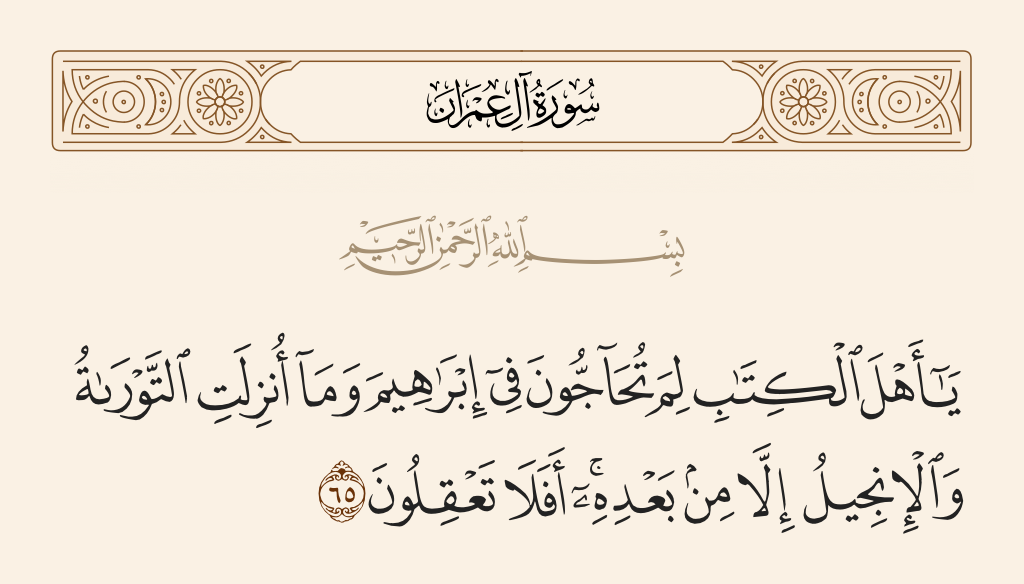 سُورَةُ آلِ عِمْرَان
بِسْمِ ٱللَّهِ ٱلرَّحْمَٰنِ ٱلرَّحِيمِ
يَـٰٓأَهْلَ ٱلْكِتَـٰبِ لِمَ تُحَآجُّونَ فِىٓ إِبْرَٰهِيمَ وَمَآ أُنزِلَتِ ٱلتَّوْرَىٰةُ
وَٱلْإِنجِيلُ إِلَّا مِنۢ بَعْدِهِۦٓ ۚ أَفَلَا تَعْقِلُونَ ٦٥